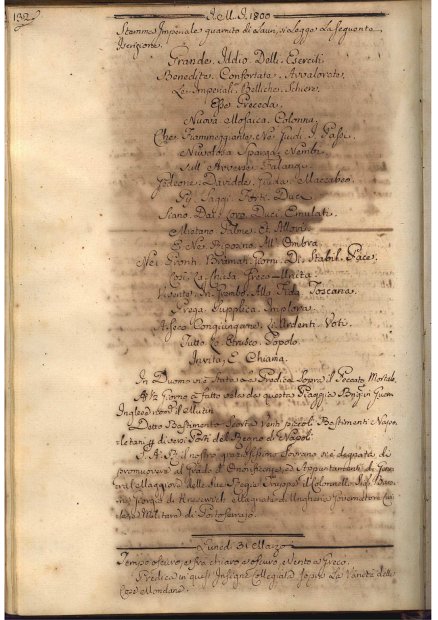 132
A. M. D. 1800
Stemma Imperiale guarnito di Lauri, si legge la seguente
Iscrizione.
Grande Iddio Delli Eserciti
Benedite Confortate Avvalorate
Le Imperiali Belliche Schiere
Esse Preceda
Nuova Mosaica Colonna
Che Fiammeggiante Ne Guidi I Passi
Nuvolosa Sparga Nembi
Sull Avverse Falangi
Gedeone Davidde Giuda Maccabeo
Gli Saggi Forti Duci
Siano Dai Loro Duci Emulati
Mietano Palme Et Allori
E Ne Riposino All' Ombra
Nei Pronti Bramati Giorni Di Stabil Pace
Così La Chiesa Greco-Unita
Vivente In Grembo Alla Fida Toscana
Prega Supplica Implora
A Seco Congiungere Li Ardenti Voti
Tutto Lo Etrusco Popolo
Invita E Chiama
In Duomo vi è stata la Predica sopra il Peccato Mortale.
giorno fatto vela da questa Piaggia Brig. in Guerra
Inglese
Detto Bastimento scorta Venti piccoli Bastimenti Napo-
letani p diversi Porti del Regno di Napoli
S. A. R. il nostro quarissimo Sovrano si è degnata di
promuovere al Grado Onorificenze, ed Appuntamenti di
delle sue Regie Truppe il Colonnello
di Kneseevich Magnate d'Ungheria Governatore Ci-
e Militare di Portoferrajo.
Lunedì 31 Marzo
Tempo oscuro, e fra chiaro e oscuro, e Vento a Greco.
Predica in quest' Insigne Collegiata sopra La Vanità delle
Cose Mondane.